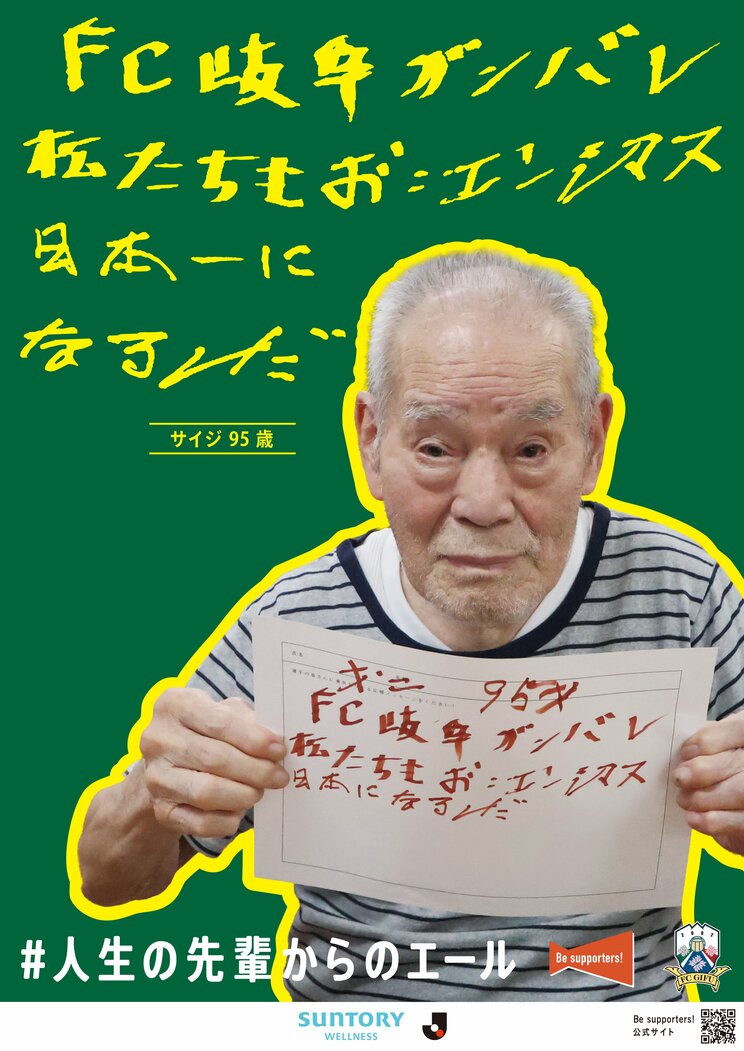 FC岐阜ガンバレ
私たちもおーエンシタス
日本一に
なるんだ
サイジ 95 歳
氏名
95才
FC岐阜ガンバレ
私たちもおーエンシタス
日本一になるんだ
#人生の先輩からのエール
Be supporters!
2001
FC GIFU
SUNTORY
WELLNESS
J
Be supporters!
公式サイト